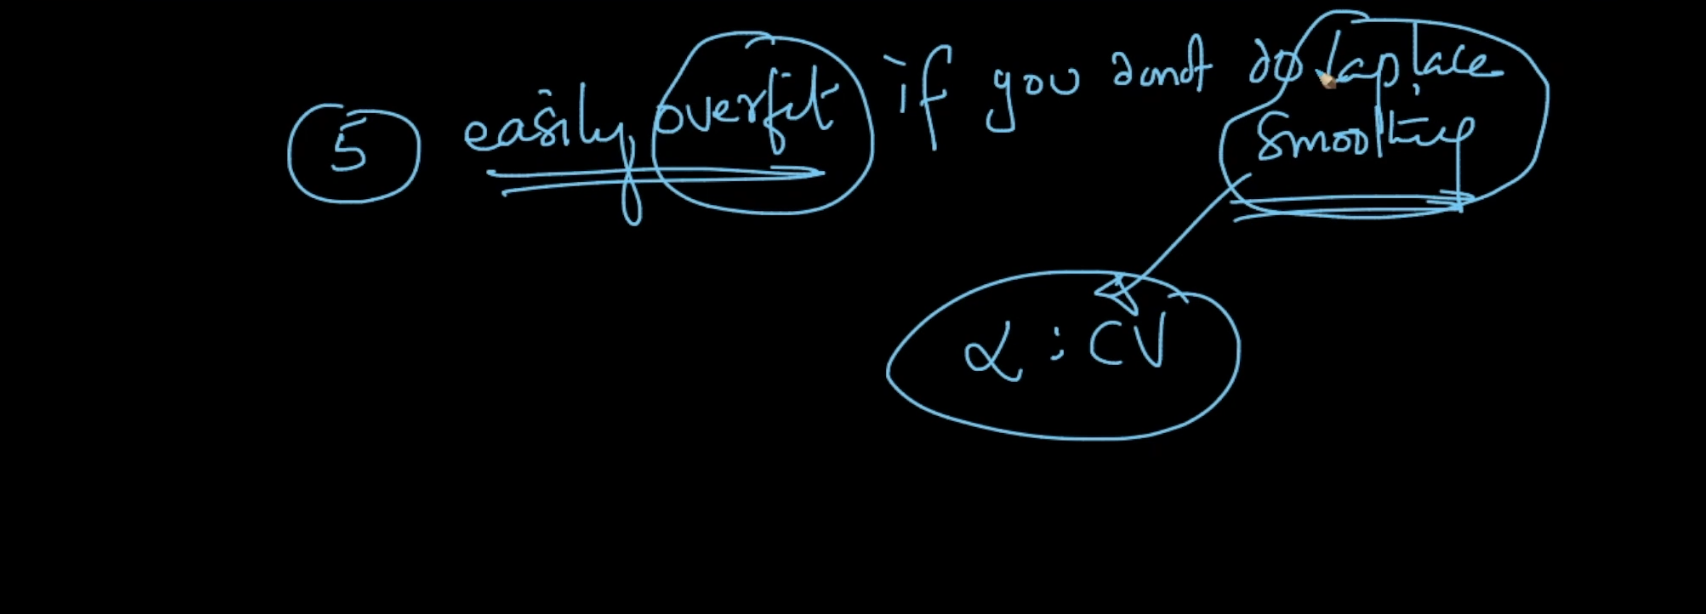 5 easily overfit if you dont do laplace
smoothing
α : CV